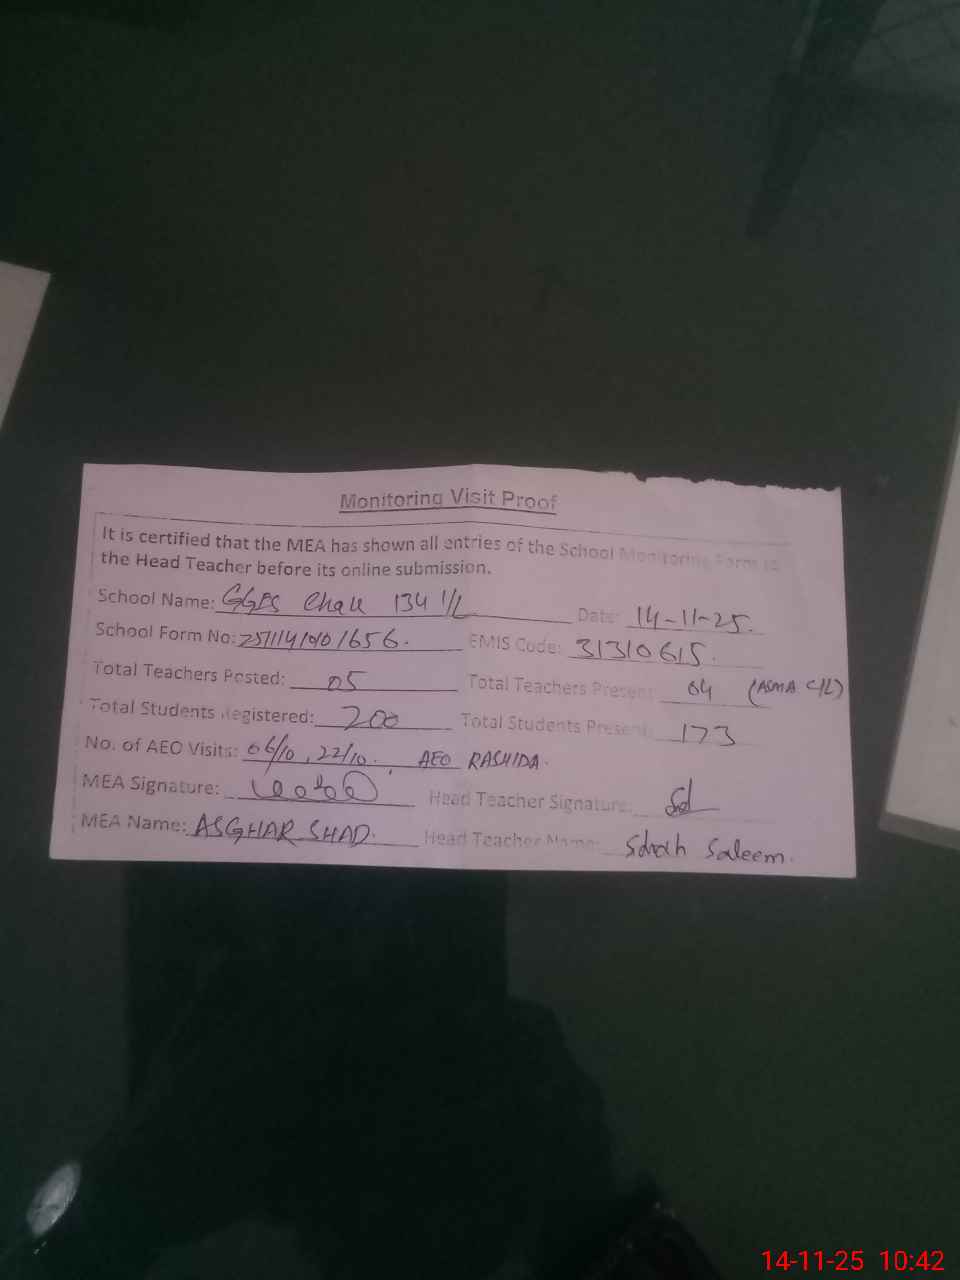 Monitoring Visit Proof
It is certified that the MEA has shown all entries of the School Monitoring Form to
the Head Teacher before its online submission.
School Name: GGES Chak 134 1/L Date: 14-11-25.
School Form No: EMIS Code: 31310615.
Total Teachers Posted: 05 Total Teachers Present: 04 (ASMA C/L)
Total Students Registered: 200 Total Students Present: 173
No. of AEO Visits: 06/10, 22/10. AEO RASHIDA.
MEA Signature: Head Teacher Signature:
MEA Name: ASGHAR SHAD. Head Teacher Name: Saleem.
14-11-25 10:42